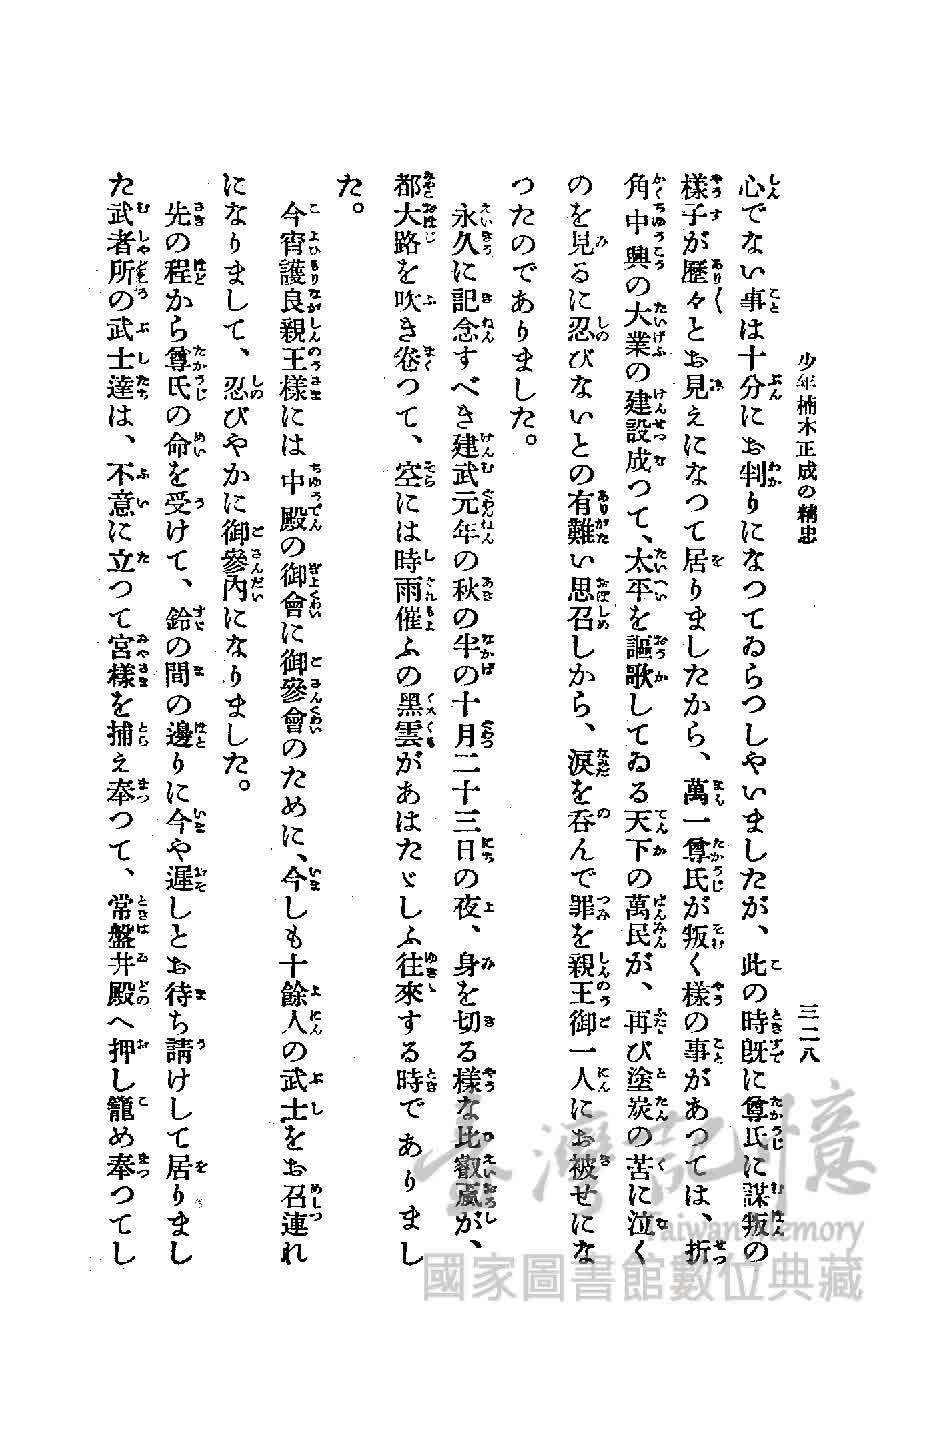 少年楠木正成の精忠
三二八
心でない事は十分にお判りになつてゐらつしやいましたが、此の時既に尊氏に謀叛の
樣子が歷々とお見えになつて居りましたから、萬一尊氏が叛く樣の事があつては、折
角中興の大業の建設成つて、太平を謳歌してゐる天下の萬民が、再び塗炭の苦に泣く
のを見るに忍びないとの有難い思召しから、淚を呑んで罪を親王御一人にお被せにな
つたのでありました。
永久に記念すべき建武元年の秋の半の十月二十三日の夜、身を切る樣な比叡颪が、
都大路を吹き卷つて、空には時雨催ふの黑雲があはたゞしふ往來する時でありまし
た。
今宵護良親王樣には中殿の御會に御參會のために、今しも十餘人の武士をお召連れ
になりまして、忍びやかに御參內になりました。
先の程から尊氏の命を受けて、鈴の間の邊りに今や遲しとお待ち請けして居りまし
た武者所の武士達は、不意に立つて宮樣を捕え奉つて、常盤井殿へ押し籠め奉つてし
臺灣記憶
Taiwan Memory
國家圖書館數位典藏